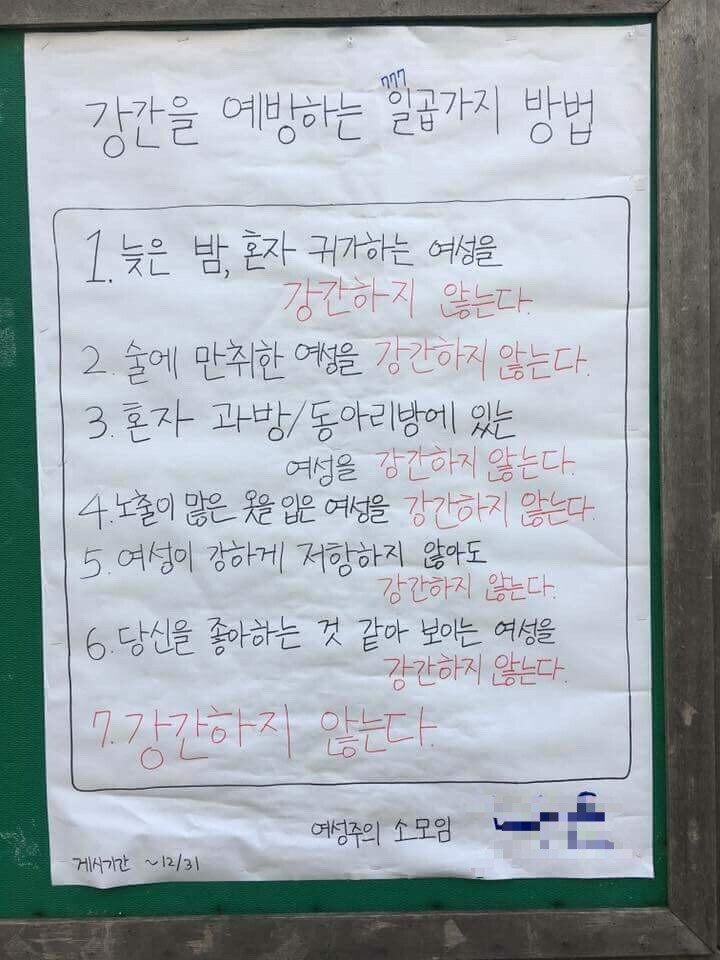 강간을 예방하는 일곱가지 방법
1. 늦은 밤, 혼자 귀가하는 여성을
강간하지 않는다.
2. 술에 만취한 여성을 강간하지 않는다.
3. 혼자 과방/동아리방에 있는
여성을 강간하지 않는다.
4. 노출이 많은 옷을 입은 여성을 강간하지 않는다.
5. 여성이 강하게 저항하지 않아도
강간하지 않는다.
6. 당신을 좋아하는 것 같아 보이는 여성을
강간하지 않는다.
7. 강간하지 않는다.
여성주의 소모임
게시기간 ~12/31